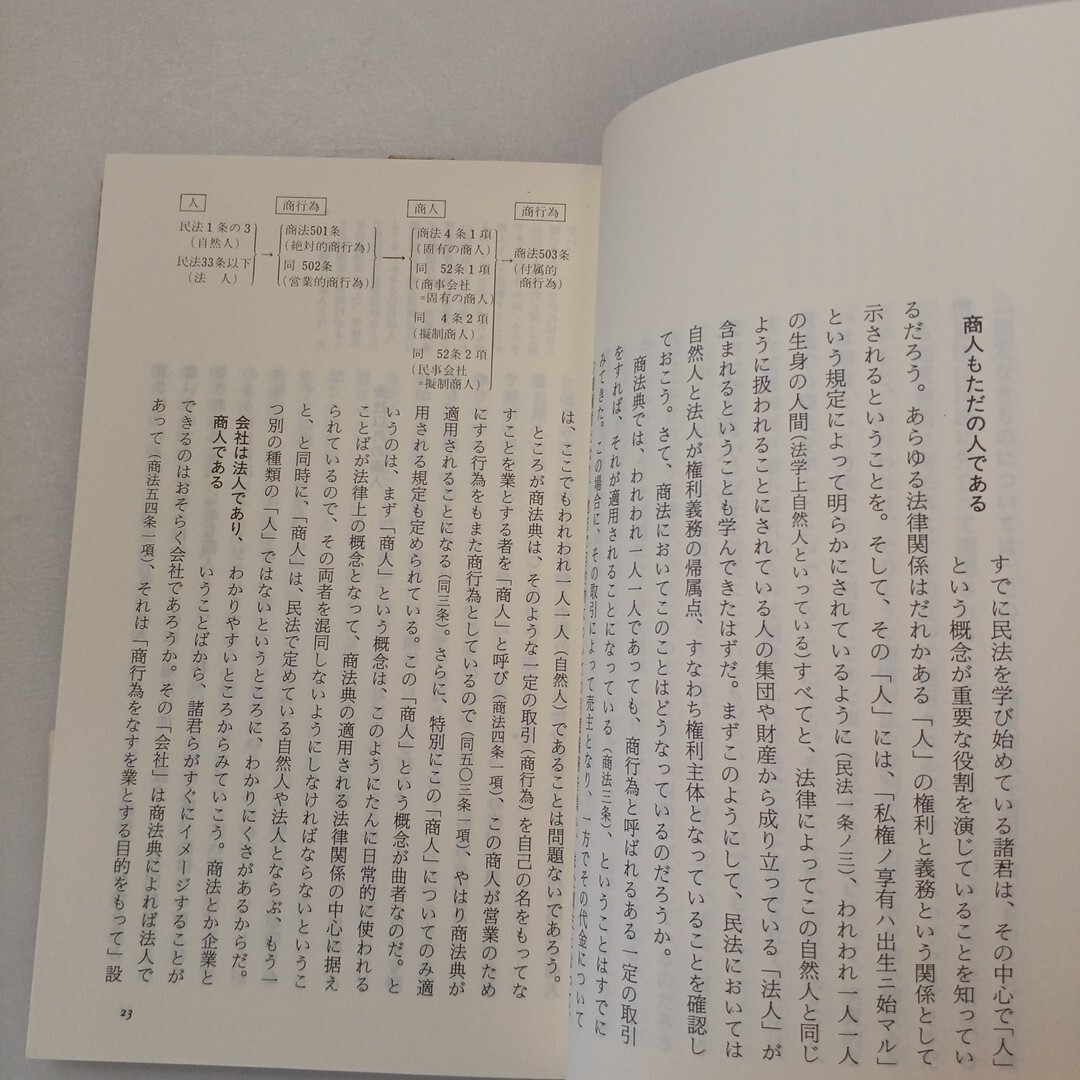 商人もただの人である
すでに民法を学び始めている諸君は、その中心で「人」
という概念が重要な役割を演じていることを知ってい
るだろう。あらゆる法律関係はだれかある「人」の権利と義務という関係として
示されるということを。そして、その「人」には、「私権ノ享有ハ出生ニ始マル」
という規定によって明らかにされているように（民法一条ノ三）、われわれ一人一人
の生身の人間（法学上自然人といっている）すべてと、法律によってこの自然人と同じ
ように扱われることにされている人の集団や財産から成り立っている「法人」が
含まれるということも学んできたはずだ。まずこのようにして、民法においては
自然人と法人が権利義務の帰属点、すなわち権利主体となっていることを確認し
ておこう。さて、商法においてこのことはどうなっているのだろうか。
商法典では、われわれ一人一人であっても、商行為と呼ばれるある一定の取引
をすれば、それが適用されることになっている（商法三条）、ということはすでに
みてきた。この場合に、その取引によって売主となり、一方でその代金について
人
民法1条の3
（自然人）
民法33条以下
（法　人）
→
商行為
商法501条
（絶対的商行為）
同 502条
（営業的商行為）
→
商人
商法4条1項
（固有の商人）
同 52条1項
（商事会社
=固有の商人）
同 4条2項
（擬制商人）
同 52条2項
（民事会社
=擬制商人）
→
商行為
商法503条
（付属的
商行為）
は、ここでもわれわれ一人一人（自然人）であることは問題ないであろう。
ところが商法典は、そのような一定の取引（商行為）を自己の名をもってな
すことを業とする者を「商人」と呼び（商法四条一項）、この商人が営業のため
にする行為をもまた商行為としているので（同五〇三条一項）、やはり商法典が
適用されることになる（同三条）。さらに、特別にこの「商人」についてのみ適
用される規定も定められている。この「商人」という概念が曲者なのだ。と
いうのは、まず「商人」という概念は、このようにたんに日常的に使われる
ことばが法律上の概念となって、商法典の適用される法律関係の中心に据え
られているので、その両者を混同しないようにしなければならないというこ
と、と同時に、「商人」は、民法で定めている自然人や法人とならぶ、もう一
つ別の種類の「人」ではないというところに、わかりにくさがあるからだ。
会社は法人であり、
商人である
わかりやすいところからみていこう。商法とか企業と
いうことばから、諸君らがすぐにイメージすることが
できるのはおそらく会社であろうか。その「会社」は商法典によれば法人で
あって（商法五四条一項）、それは「商行為をなすを業とする目的をもって」設
23